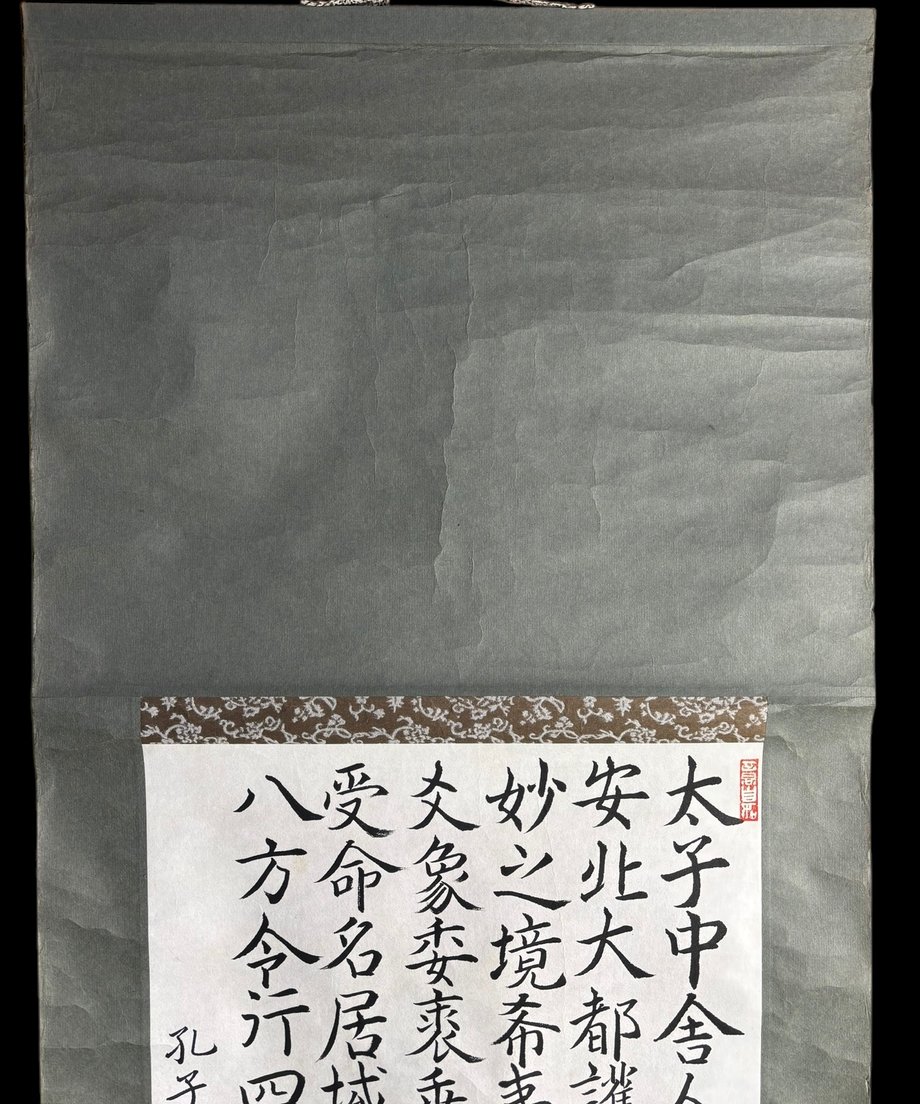 太子中舍人
安北大都護
妙之境希夷
爻象委裘垂
受命名居域
八方令行四
孔子